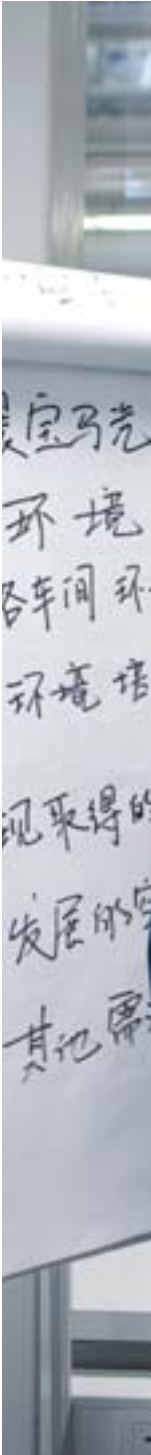 宝马党
环境
各车间环
环境培
现取得的
发展的
其他需